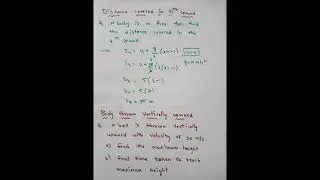 Distance covered in nth second
Q. A body is in free fall. Find
the distance covered in the
4th second.
→ Sn = u + g/2 (2n-1)
S4 = 0 + 10/2 (2(4)-1)
g = 10 m/s²
S4 = 5 (8-1)
S4 = 5(7)
S4 = 35 m
Body thrown vertically upward
Q. A ball is thrown vertically
upward with velocity of 20 m/s
a) find the maximum height
b) find time taken to reach
maximum height